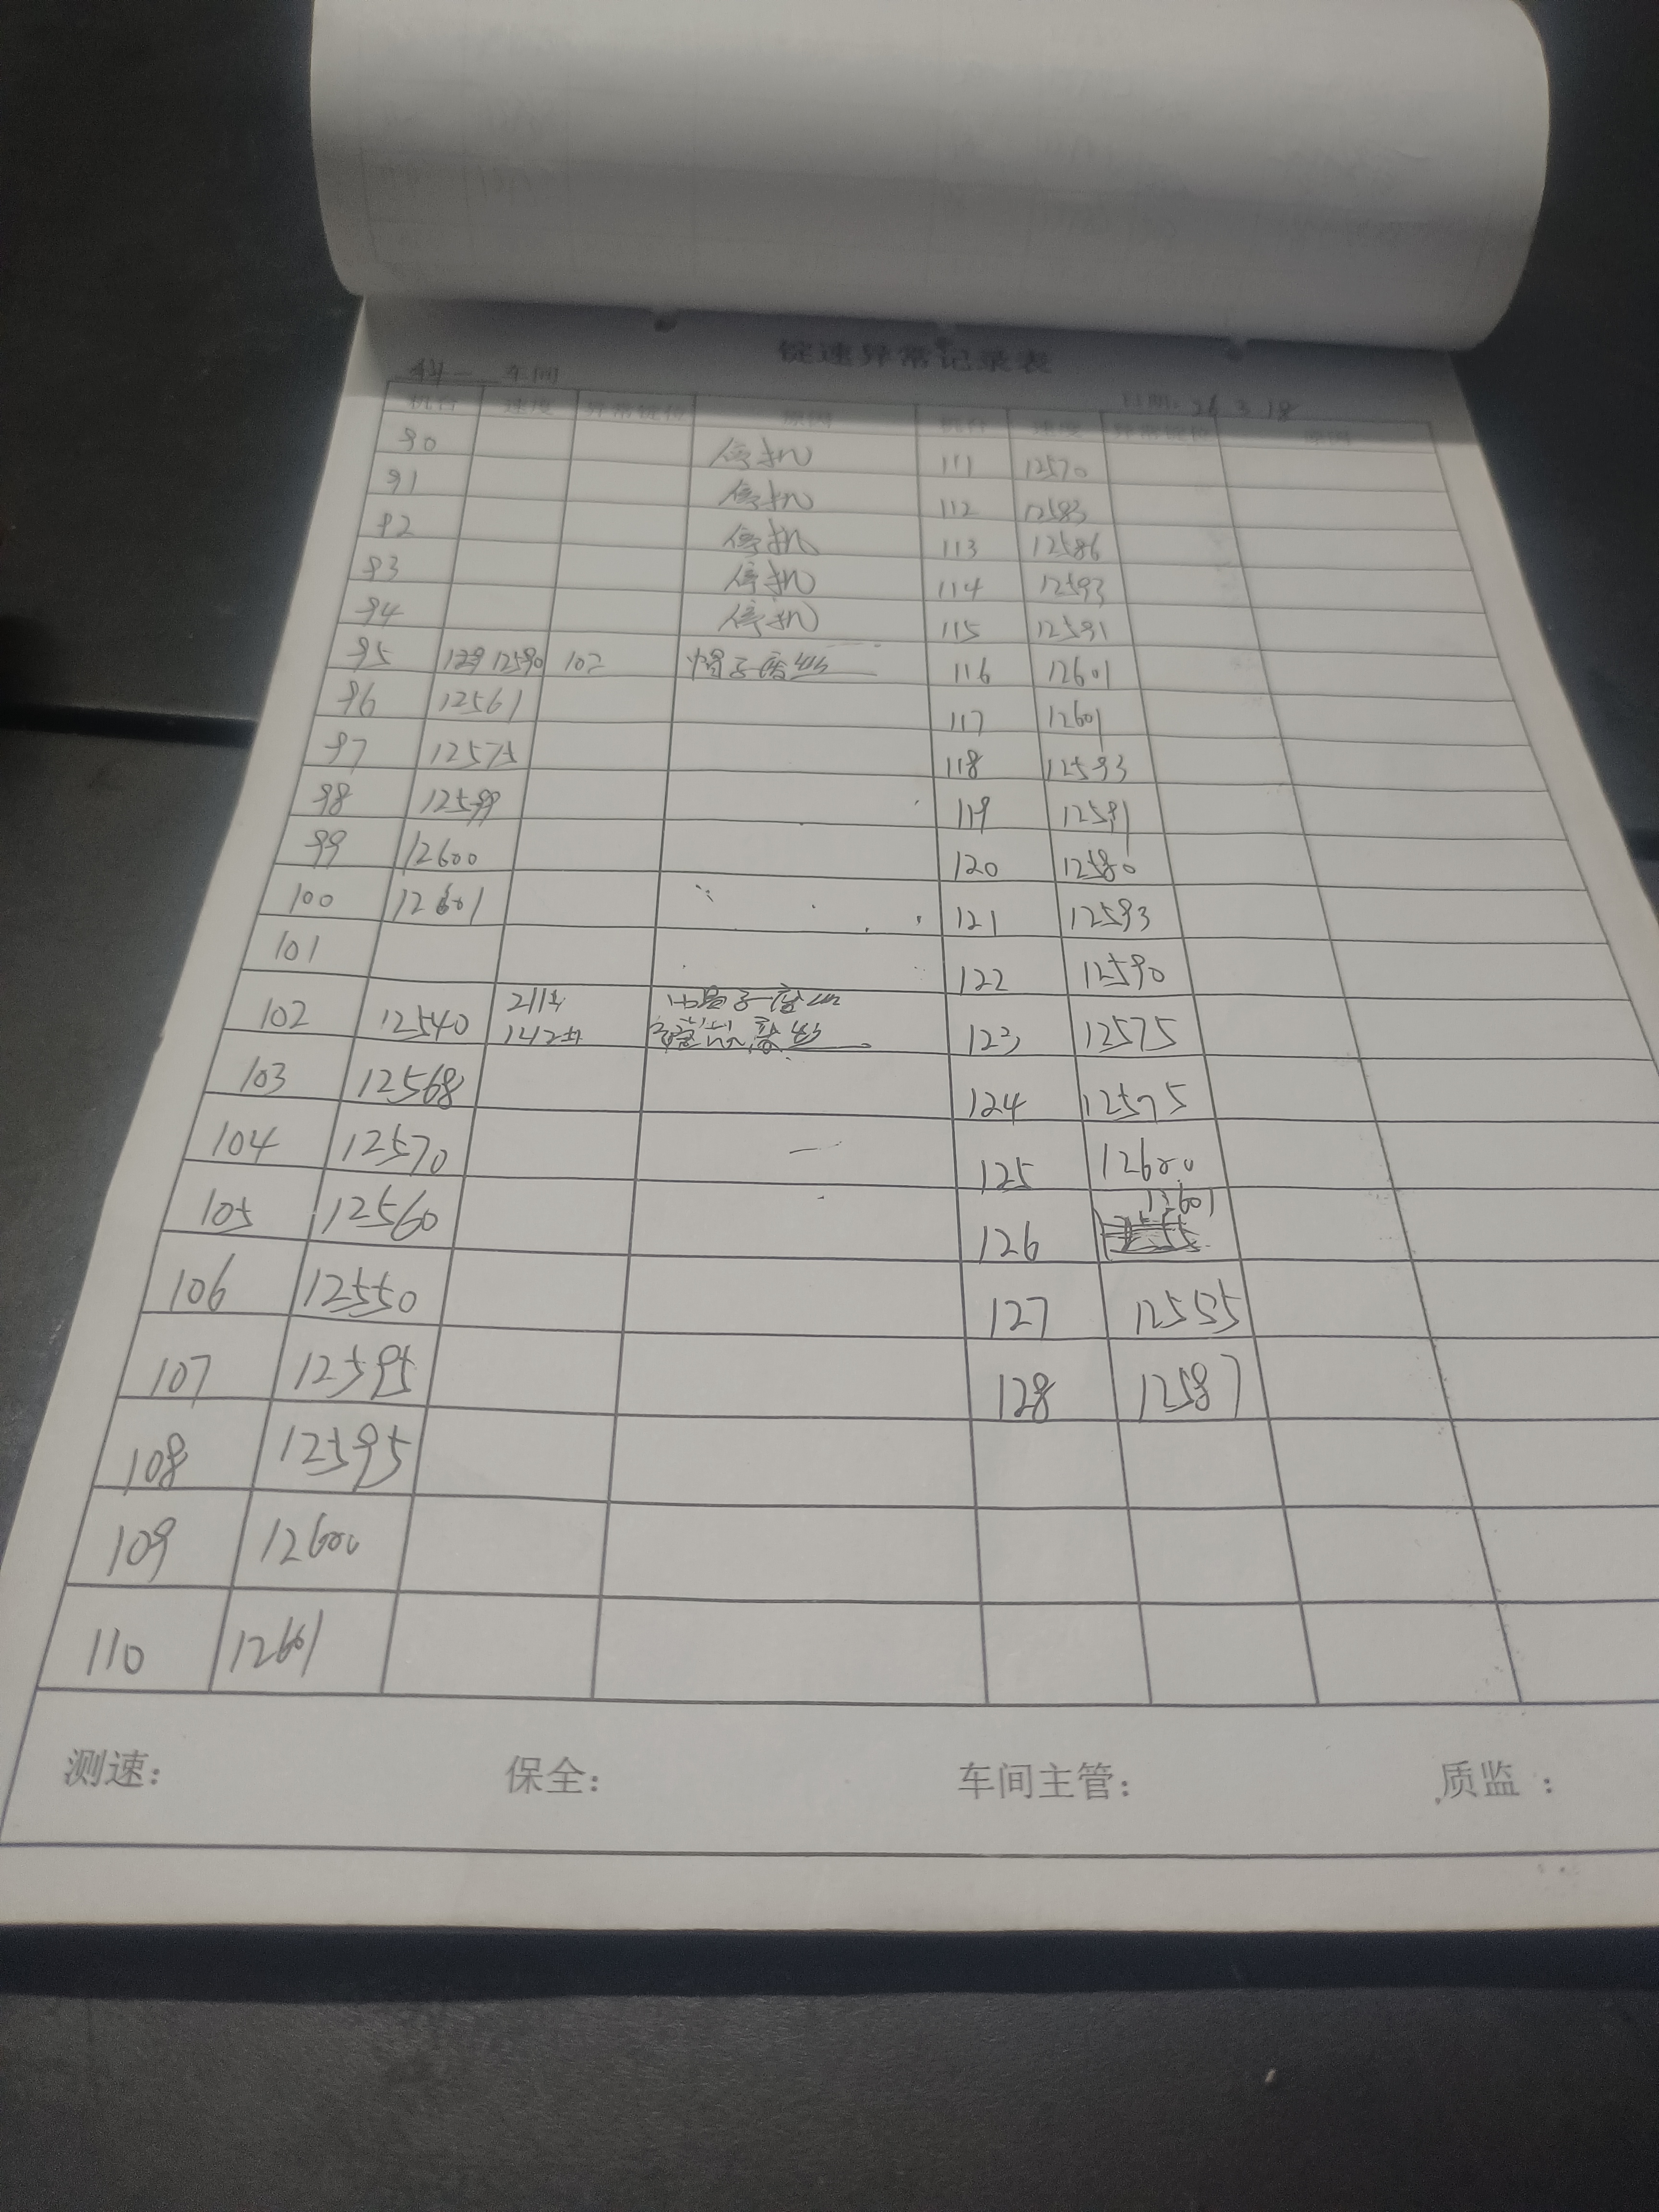 锭速异常记录表
车间 日期: 26 3 18
机台 速度 异常锭位 原因 机台 速度 异常锭位 原因
90 停机 111 12570
91 停机 112 12583
92 停机 113 12586
93 停机 114 12593
94 停机 115 12591
95 12590 102 锭子废丝 116 12601
96 12561 117 12601
97 12575 118 12593
98 12599 119 12591
99 12600 120 12580
100 12601 121 12593
101 122 12590
102 12540 211# 142# 锭子废丝 123 12575
103 12568 124 12575
104 12570 125 12600
105 12560 126 12601
106 12550 127 12555
107 12595 128 12587
108 12595
109 12600
110 12601
测速: 保全: 车间主管: 质监: